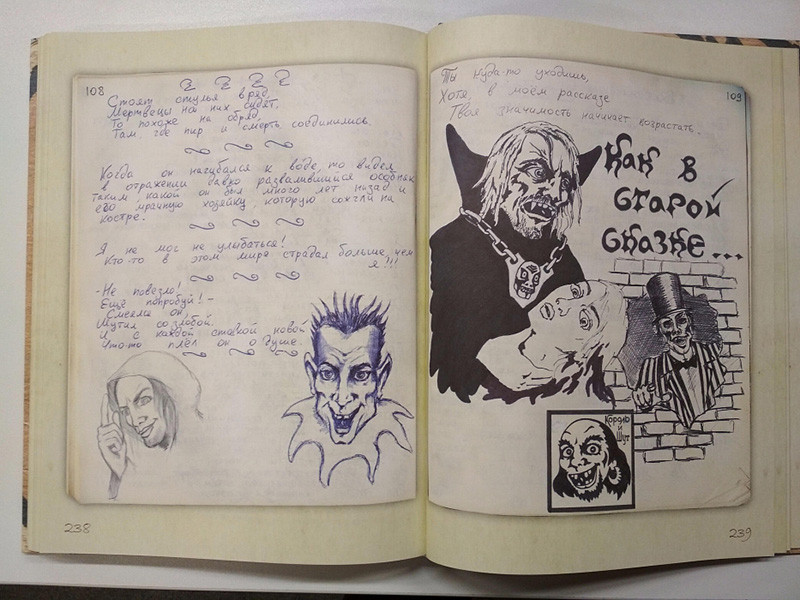 108
Стоят стулья в ряд,
Мертвецы на них сидят,
То похоже на обряд,
Там где пир и смерть соединились.
Когда он нагибался к воде, то видел
в отражении давно развалившийся особняк
таким, какой он был много лет назад и
его мрачную хозяйку, которую сожгли на
костре.
Я не мог не улыбаться!
Кто-то в этом мире страдал больше, чем
я!!!
- Не повезло!
Ещё попробуй! -
Смеялся он,
Шутил со злобой.
И с каждой ставкой новой
Что-то плёл он о душе.
238
Ты куда-то уходишь,
Хотя, в моём рассказе
Твоя значимость начинает возрастать.
109
Как в
старой
сказке...
Король
и
Шут
239